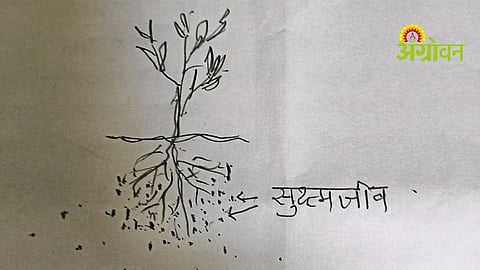 अग्रोवन
सुक्ष्मजीव